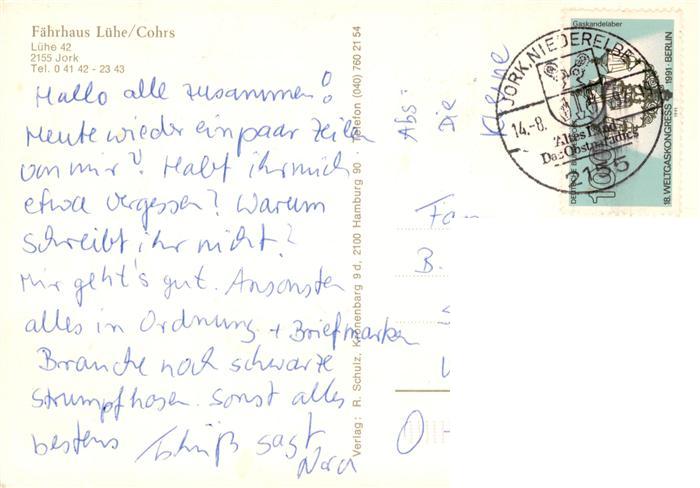 Fährhaus Lühe/Cohrs
Lühe 42
2155 Jork
Tel. 0 41 42 - 23 43
Hallo alle zusammen!
Heute wieder ein paar Zeilen
von mir! Habt ihr mich
etwa vergessen? Warum
schreibt ihr nicht?
Mir geht's gut. Ansonsten
alles in Ordnung + Briefmarken
Brauche noch schwarze
Strumpfhosen. Sonst alles
bestens Tschüß sagt
Nora
Verlag: R. Schulz, Kronenbarg 9 d, 2100 Hamburg 90 · Telefon (040) 760 21 54
Abs:
Die
Kleene
Fa
B.
JORK, NIEDERELBE
14.-8.
Altes Land
Das Obstparadies
2155
Gaskandelaber
100
18. WELTGASKONGRESS 1991 · BERLIN